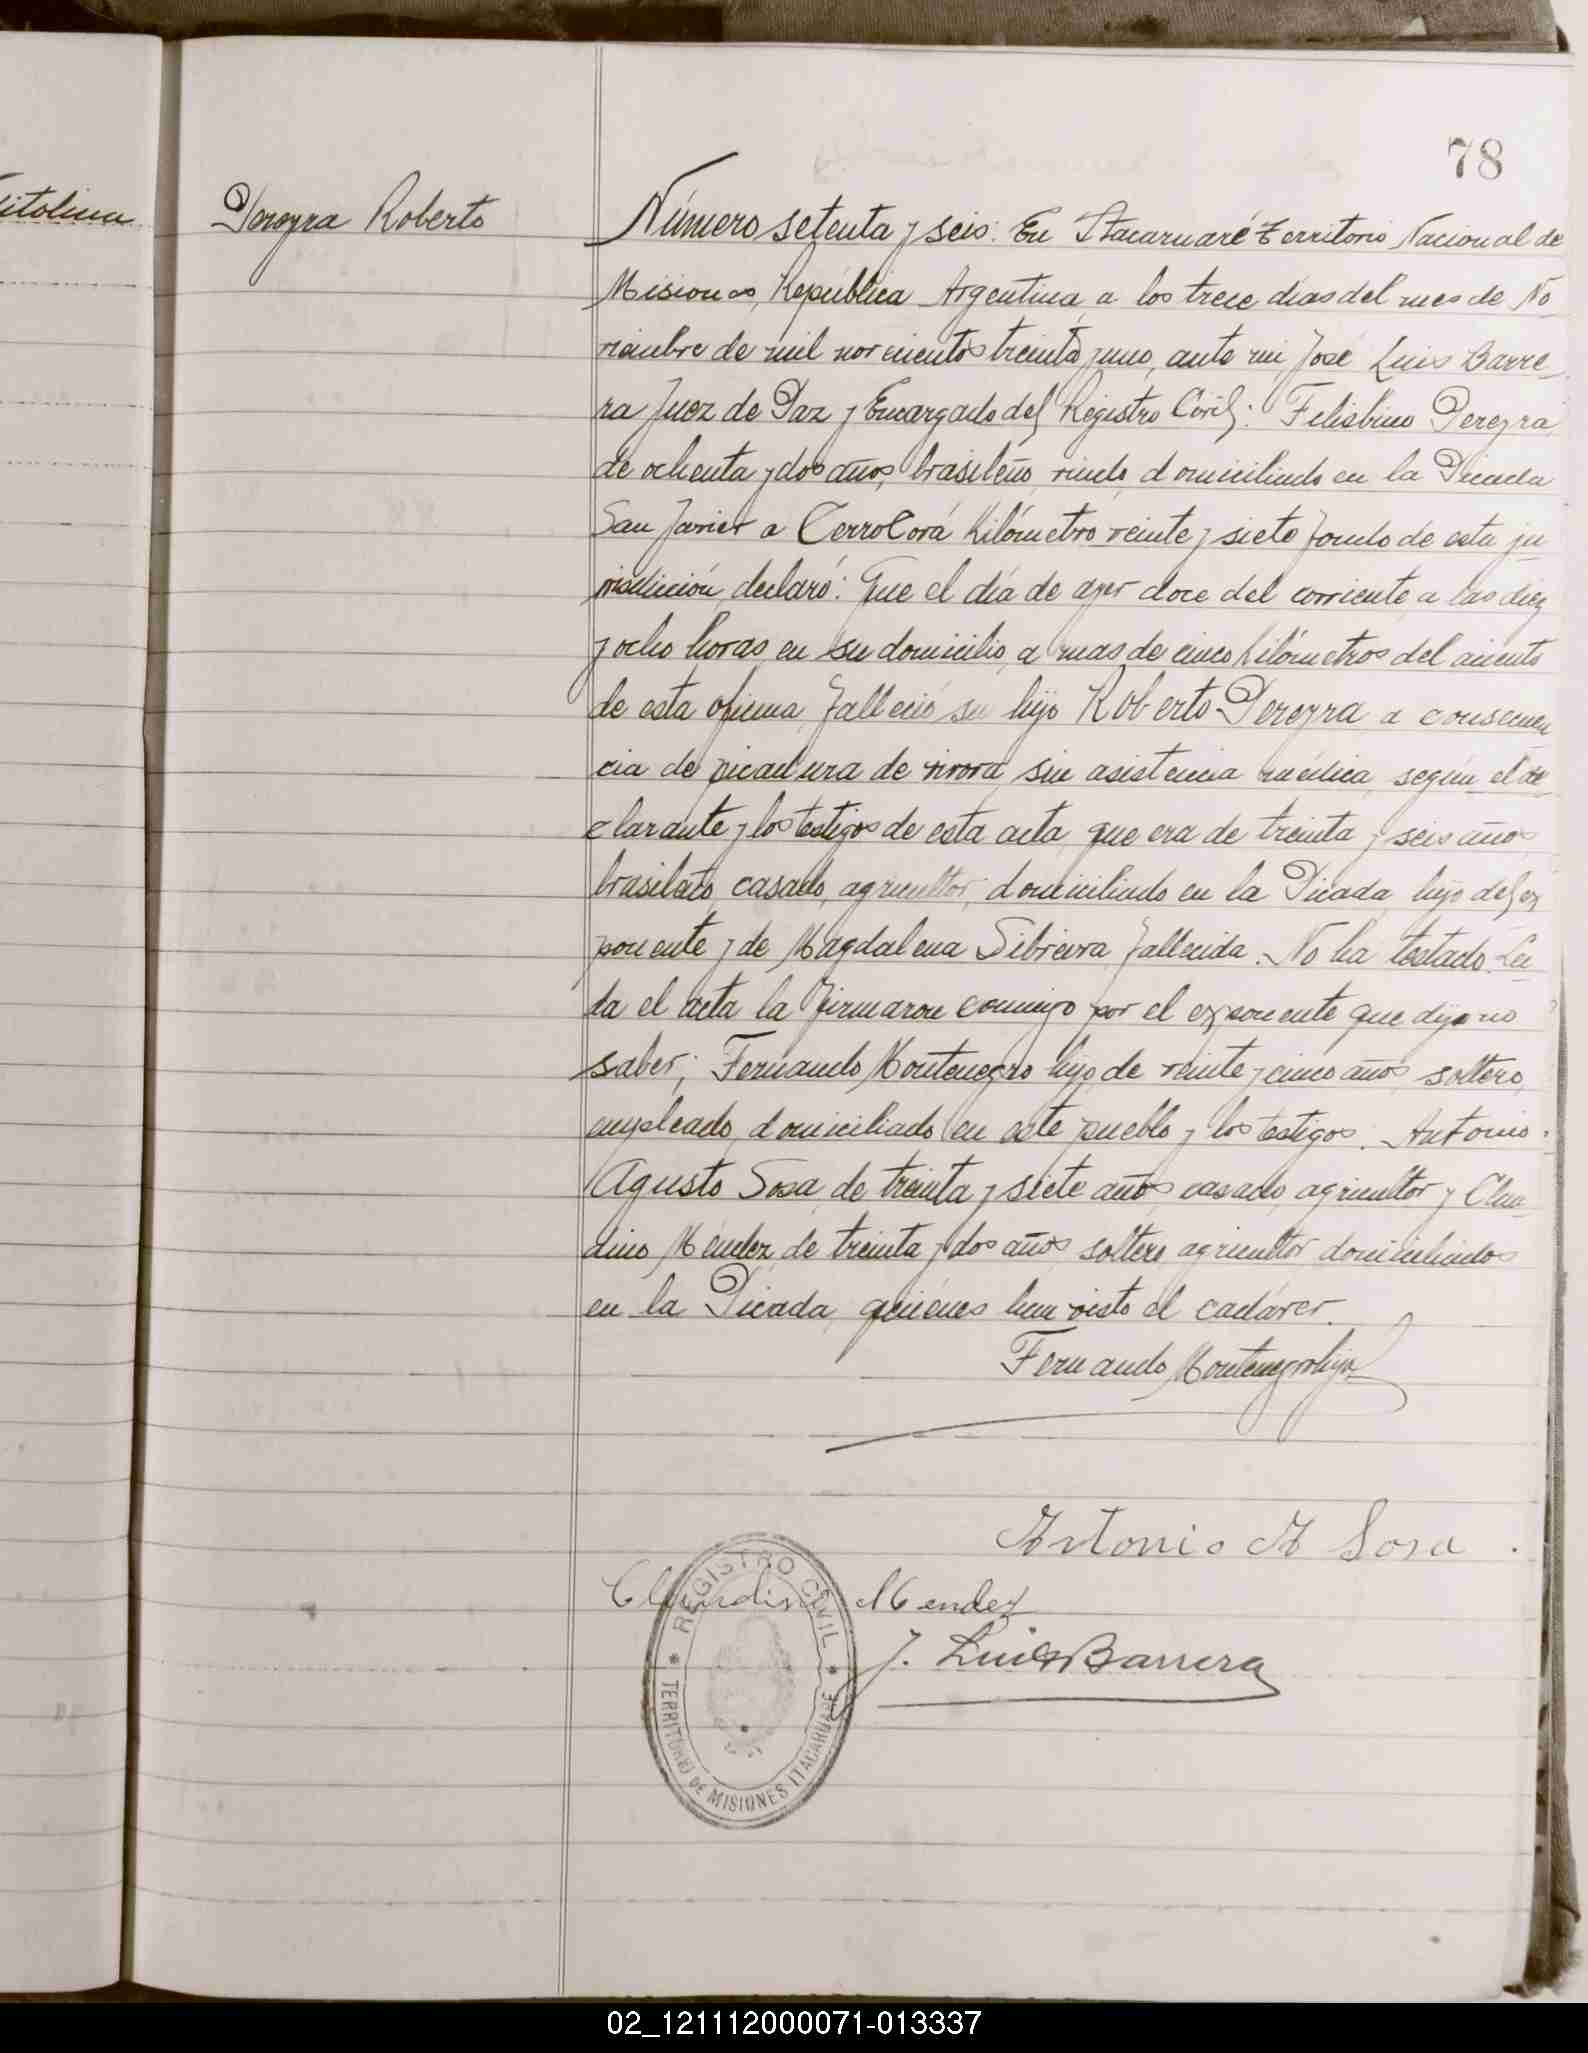 78
itolina
Pereyra Roberto
Número setenta y seis: En Itacaruaré Territorio Nacional de
Misiones, República Argentina, a los trece días del mes de No-
viembre de mil novecientos treinta y uno, ante mi, José Luis Barre-
ra Juez de Paz y Encargado del Registro Civil: Felisbino Pereyra,
de ochenta y dos años, brasileño, viudo, domiciliado en la Picada
San Javier a Cerro Corá Kilómetro veinte y siete fondo de esta ju-
risdicción, declaró: Que el día de ayer doce del corriente, a las diez
y ocho horas, en su domicilio, a mas de cinco kilómetros del asiento
de esta oficina, falleció su hijo Roberto Pereyra a consecuen-
cia de picadura de vivora, sin asistencia médica, según el de-
clarante y los testigos de esta acta, que era de treinta y seis años,
brasileño, casado, agricultor, domiciliado en la Picada, hijo del ex-
ponente y de Magdalena Sibreira, fallecida. No ha testado. Leí-
da el acta la firmaron conmigo por el exponente que dijo no
saber, Fernando Montenegro hijo, de veinte y cinco años, soltero,
empleado, domiciliado en este pueblo y los testigos: Antonio
Agusto Sosa, de treinta y siete años, casado, agricultor y Clau-
dino Méndez, de treinta y dos años, soltero, agricultor domiciliados
en la Picada, quiénes han visto el cadáver.
Fernando Montenegro hijo
Antonio A Sosa.
Claudino Mendez
J. Luis Barrera
REGISTRO CIVIL
TERRITORIO DE MISIONES ITACARUARE
02_121112000071-013337